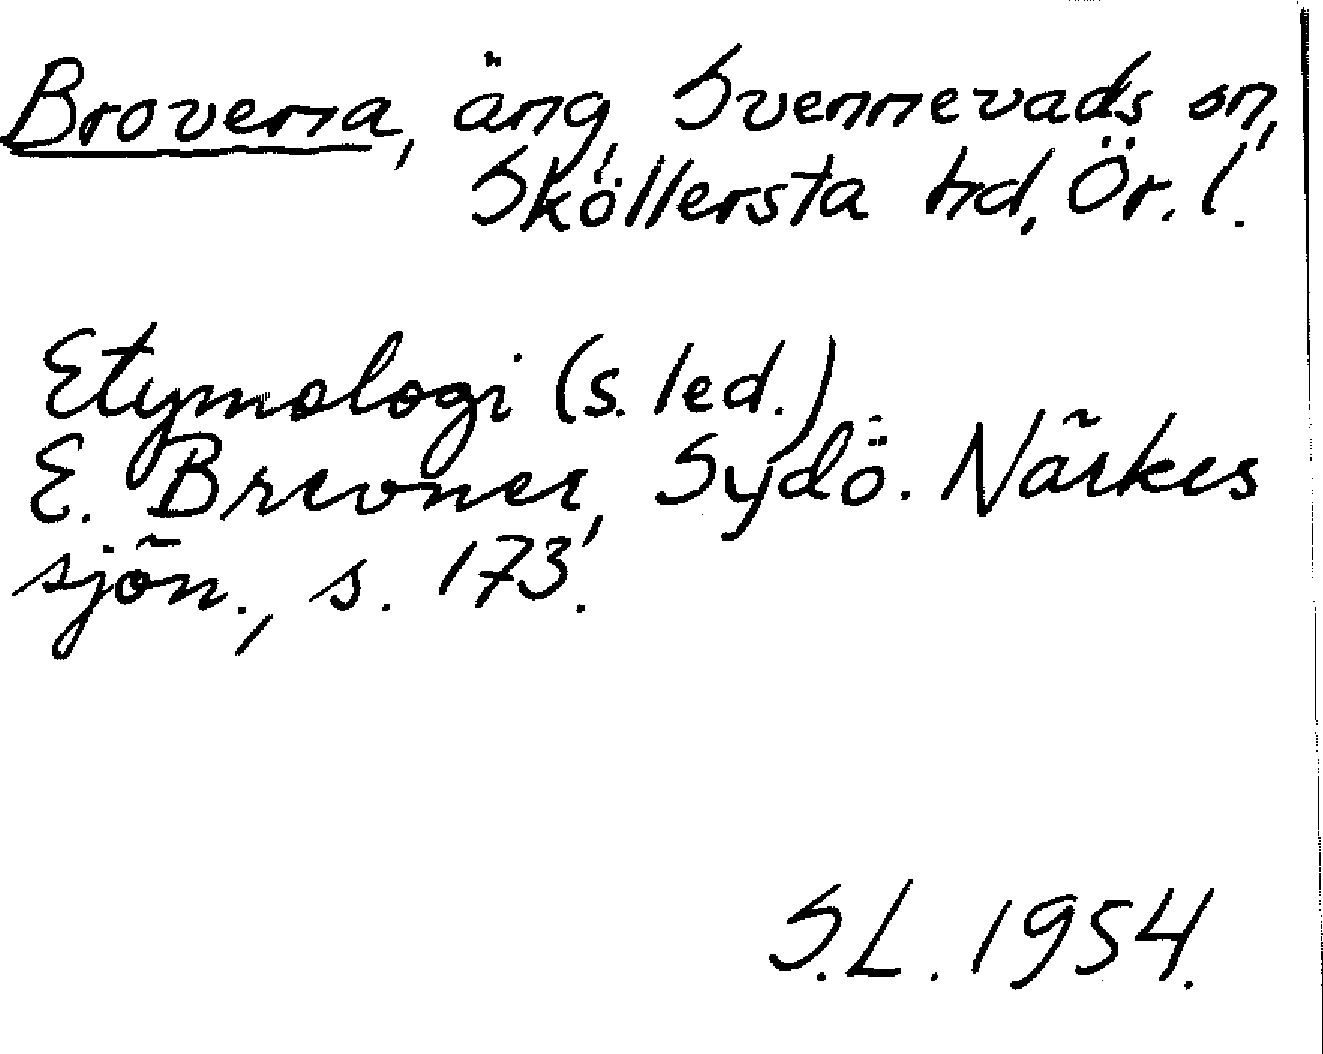 Broverna, äng, Svennevads sn,
Sköllersta hd, Ör. l.
Etymologi (s. led.)
E. Brevner, Sydö. Närkes
sjön., s. 173.
S.L. 1954.